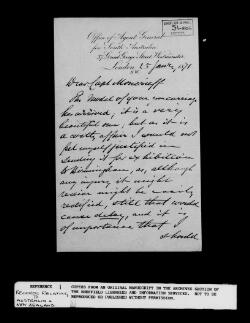 Office of Agent General
for South Australia
37 Great George Street Westminster
London 25 Jan
S.W.
Dear Capt Moncrieff
The Model of your
has arrived, it is a very
beautiful one, but as it is
a costly affair I would not
feel myself justified in
sending it for exhibition
to Birmingham, as, although
any injury it might
receive might be easily
rectified, still that would
cause delay, and it is
of importance that
it should
REFERENCE
RECORDS RELATING
TO
AUSTRALIA &
NEW ZEALAND
COPIED FROM AN ORIGINAL MANUSCRIPT IN THE ARCHIVES SECTION OF
THE SHEFFIELD LIBRARIES AND INFORMATION SERVICES. NOT TO BE
REPRODUCED OR PUBLISHED WITHOUT PERMISSION.